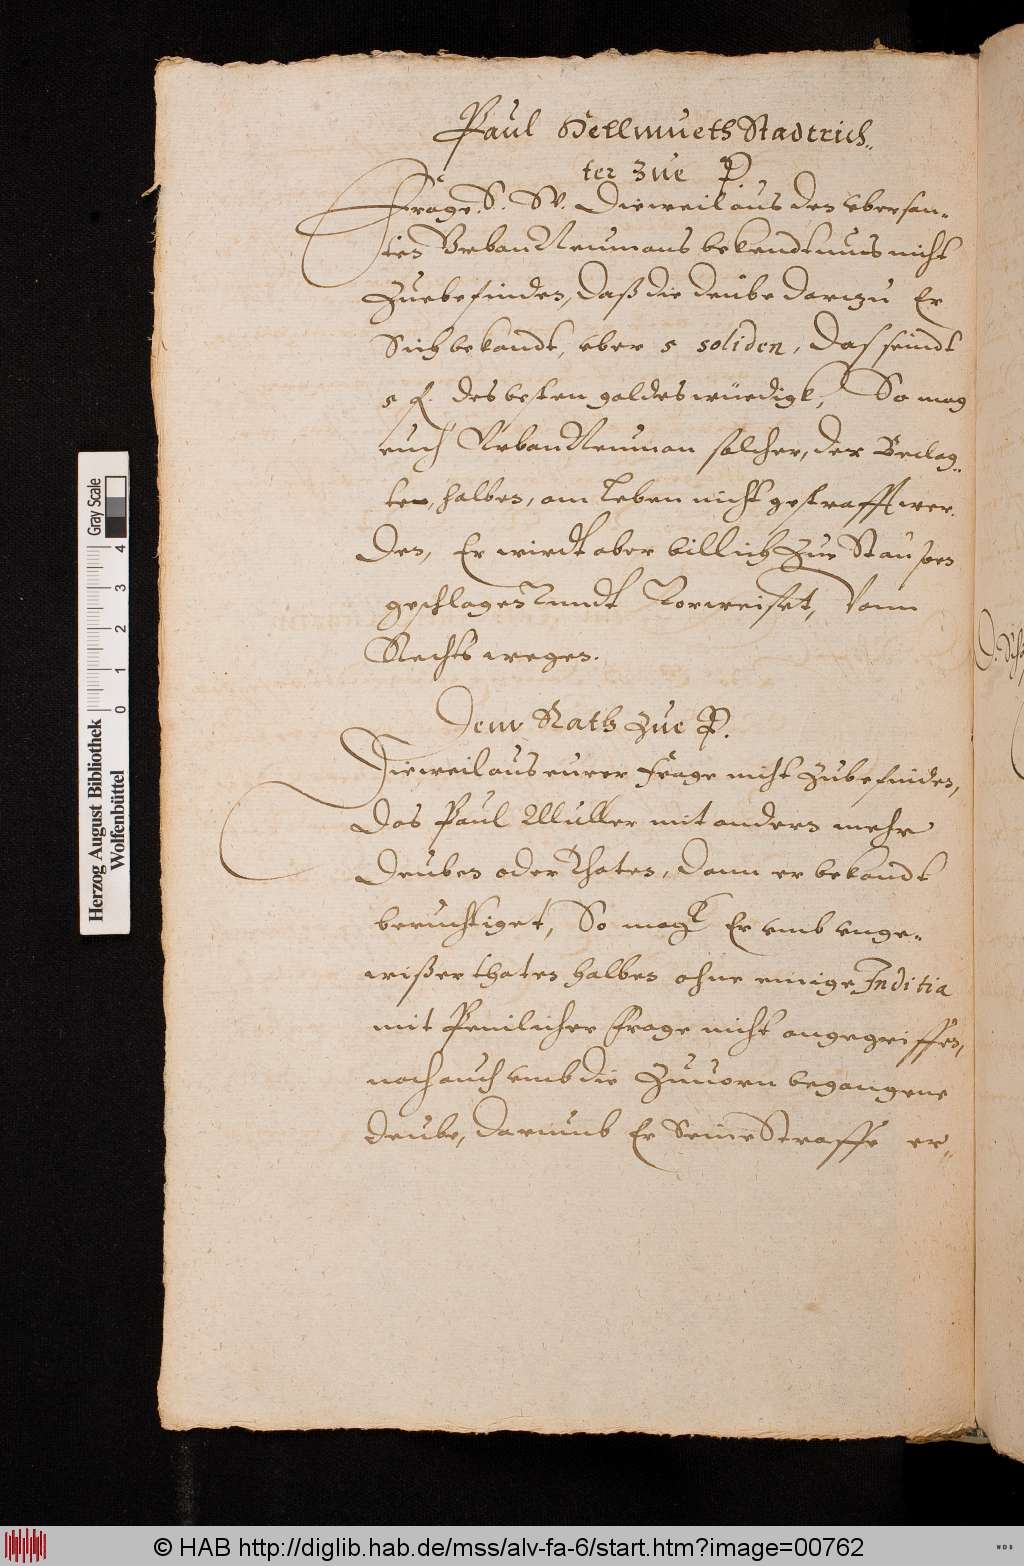 Paul Hellmueth Stadtrich-
ter zue P.
Frage. S. W. Dieweil aus den vbersan-
ten Vrban Neumans bekendtnus nicht
Zuebefinden, daß die deube darzu Er
Sich bekandt, vber 5 soliden, Das seindt
5 fl. des besten goldes wüedigk, So mag
euch Vrban Neuman solcher, der Beclag-
ten, halben, am leben nicht gestrafft wer-
den, Er wirdt aber billich Zur Staupen
geschlagen Vnndt Vorweiset, Vonn
Rechts wegen.
Dem Rath zue P.
Dieweil aus eurer Frage nicht Zubefinden,
das Paul Muller mit andern mehr
deuben oder thaten, dann er bekandt
beruchtiget, So magk Er vmb vnge-
wißer thaten halben ohne einige Inditia
mit Peinlicher Frage nicht angegriffen,
noch auch vmb die Zuuorn begangene
deube, darumb Er Seine Straffe er-
Herzog August Bibliothek
Wolfenbüttel
Gray Scale
0 1 2 3 4
© HAB http://diglib.hab.de/mss/alv-fa-6/start.htm?image=00762